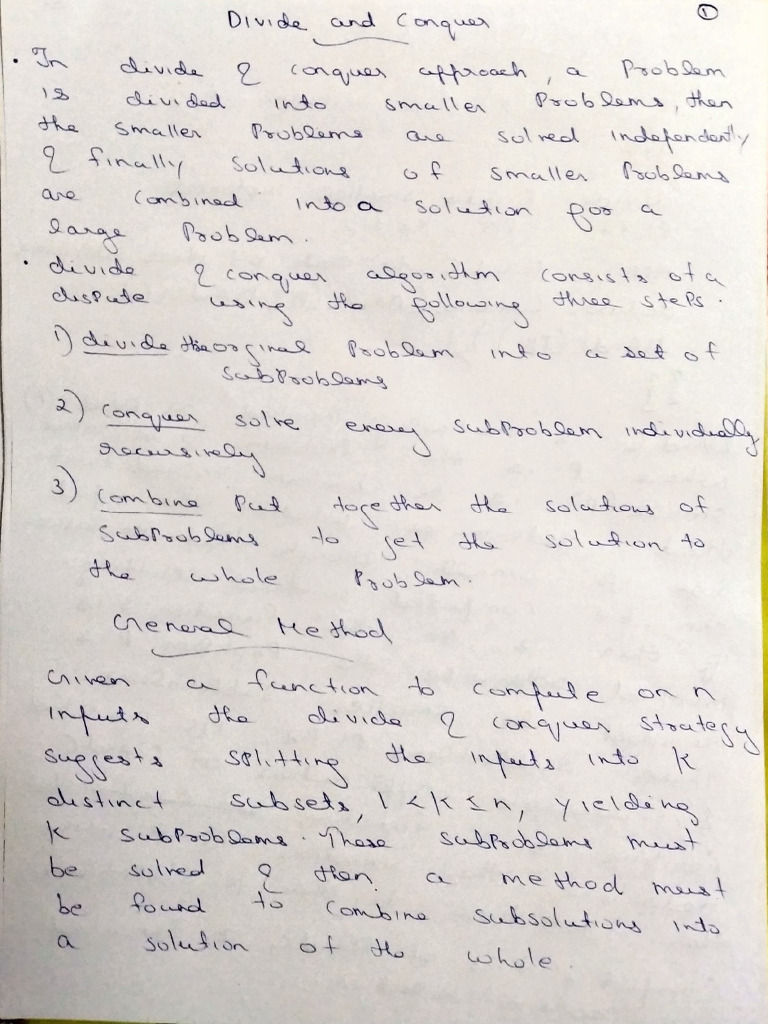 Divide and Conquer
①
• In divide & conquer approach, a Problem
is divided into smaller Problems, then
the smaller Problems are solved independently
& finally solutions of smaller Problems
are combined into a solution for a
large Problem.
• divide & conquer algorithm consists of a
dispute using the following three steps.
1) divide the orginal Problem into a set of
SubProblems
2) conquer solve every SubProblem individually
recursively
3) Combine Put together the solutions of
SubProblems to get the solution to
the whole Problem.
General Method
Given a function to compute on n
inputs the divide & conquer strategy
suggests splitting the inputs into K
distinct subsets, 1 < K ≤ n, yielding
K SubProblems. These subProblems must
be solved & then a method must
be found to combine subsolutions into
a solution of the whole.